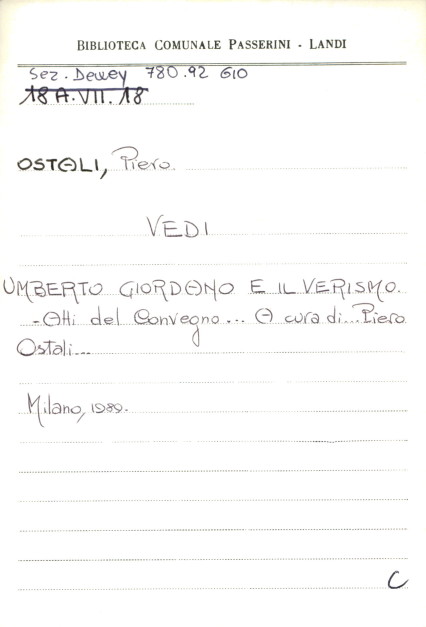 BIBLIOTECA COMUNALE PASSERINI - LANDI
Sez. Dewey 780.92 GIO
18 A.VII.18
OSTALI, Piero.
VEDI
UMBERTO GIORDANO E IL VERISMO.
- Atti del Convegno... A cura di... Piero
Ostali...
Milano, 1989.
C